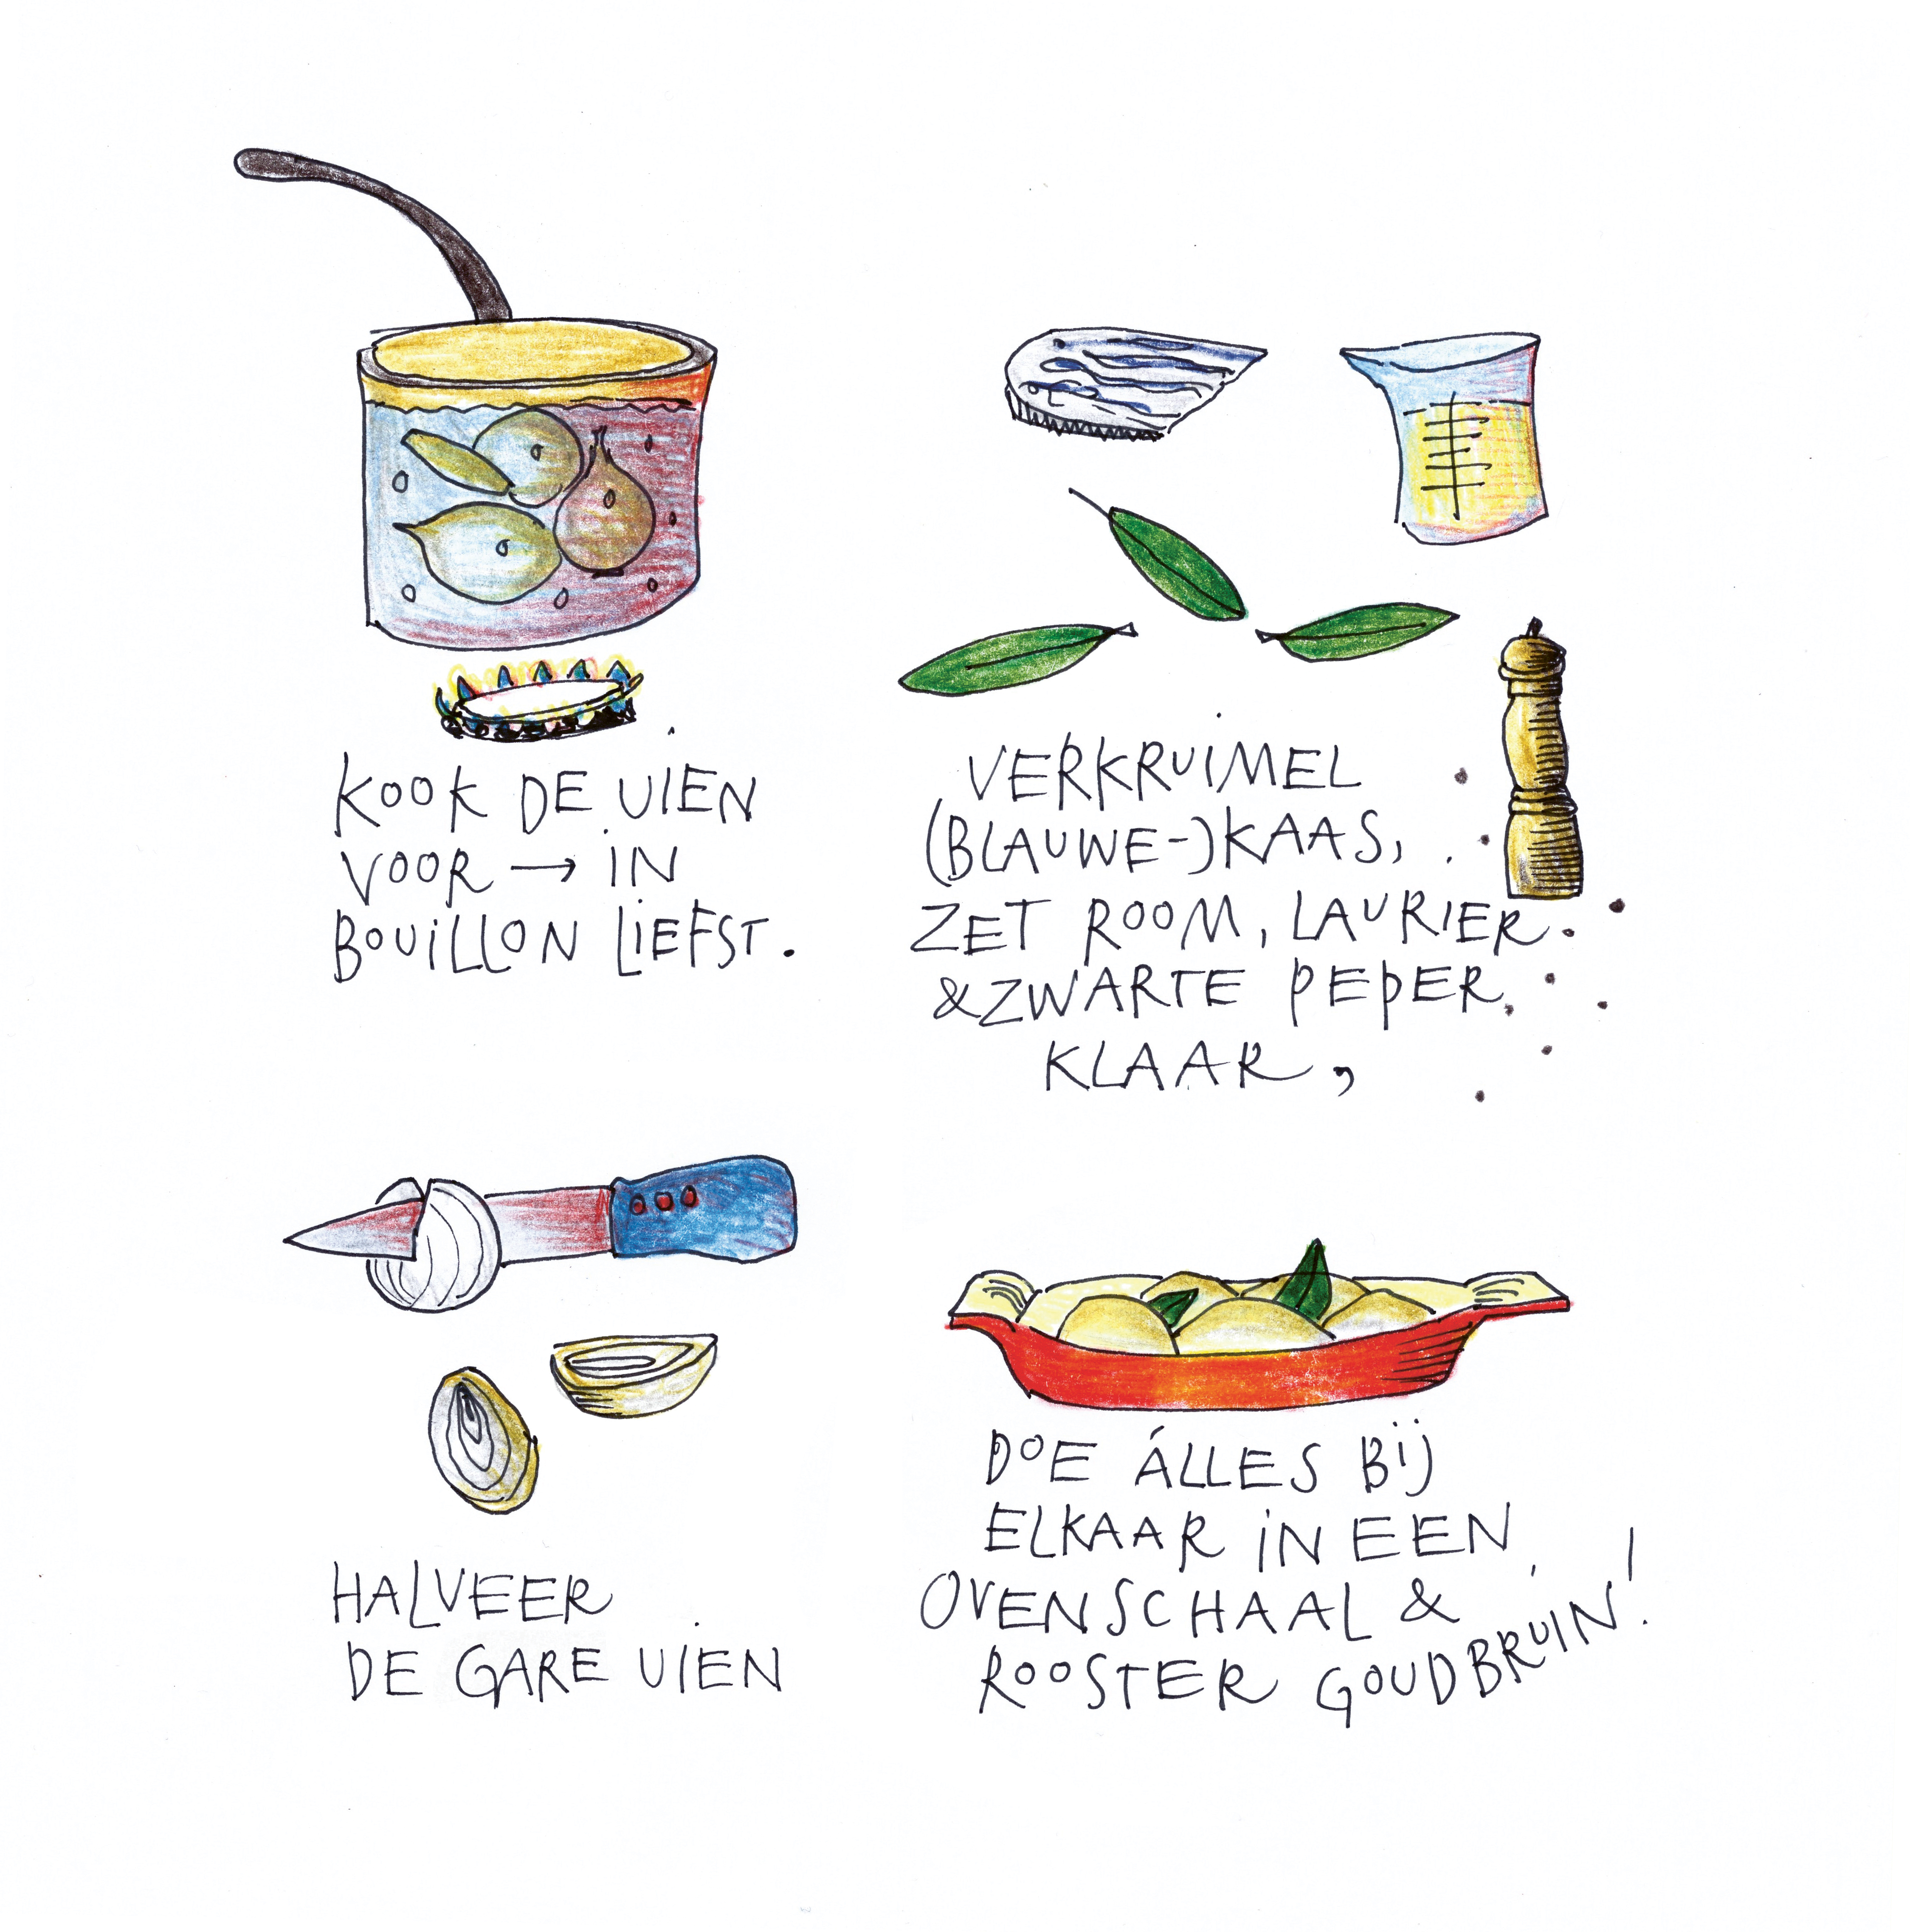 KOOK DE UIEN
VOOR → IN
BOUILLON LIEFST.
VERKRUIMEL
(BLAUWE-)KAAS,
ZET ROOM, LAURIER
& ZWARTE PEPER
KLAAR,
HALVEER
DE GARE UIEN
DOE ÁLLES BIJ
ELKAAR IN EEN
OVENSCHAAL &
ROOSTER GOUDBRUIN!